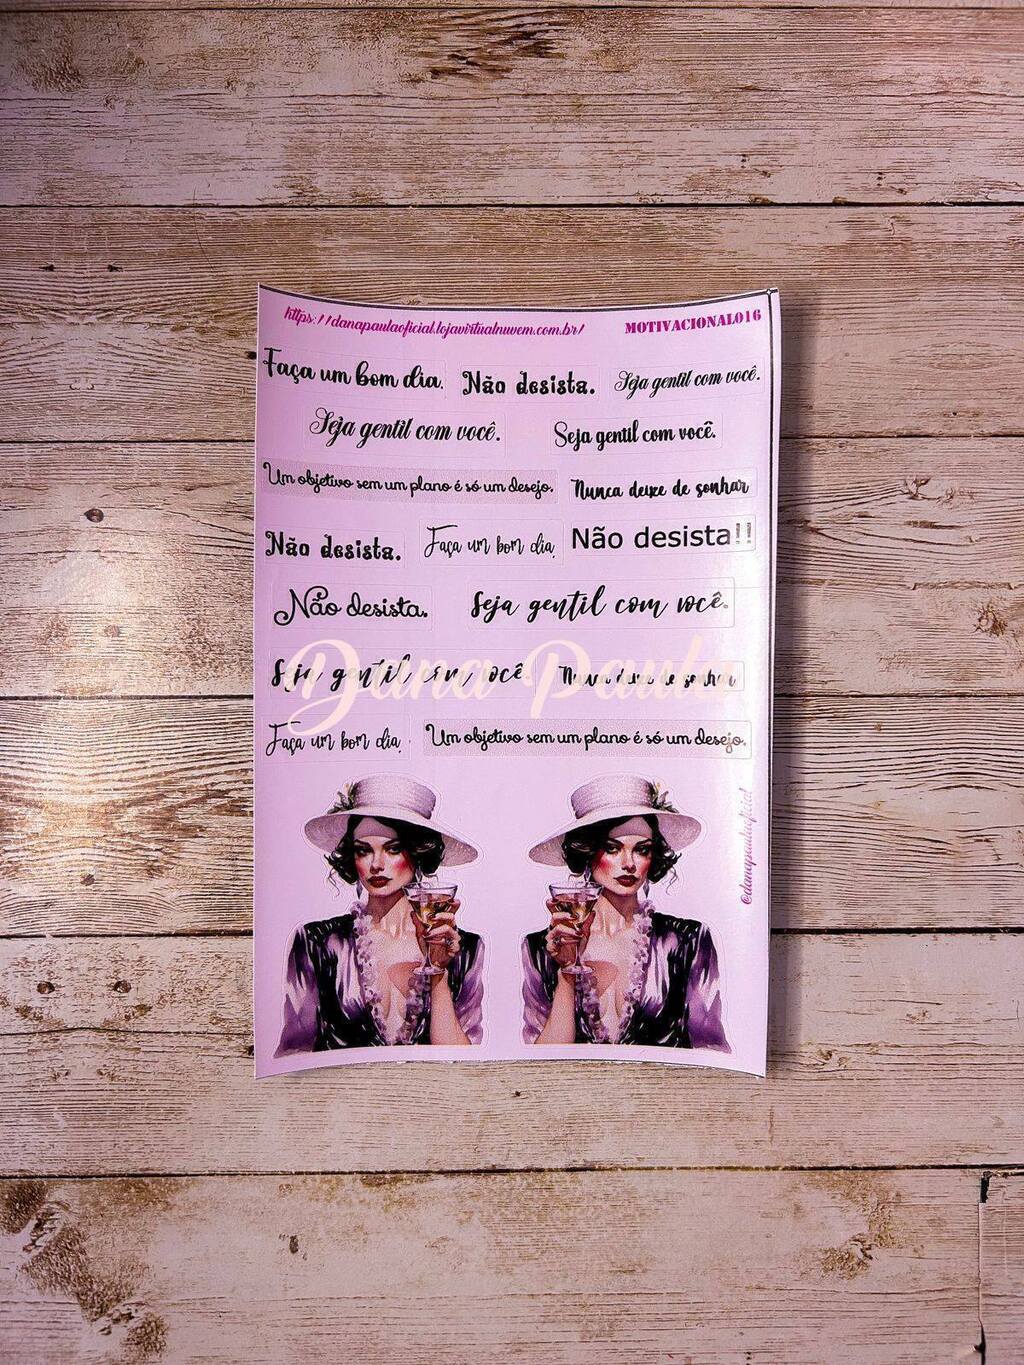 https://danapaulaoficial.lojavirtualnuvem.com.br/ MOTIVACIONAL016
Faça um bom dia. Não desista. Seja gentil com você.
Seja gentil com você. Seja gentil com você.
Um objetivo sem um plano é só um desejo. Nunca deixe de sonhar
Não desista. Faça um bom dia. Não desista
Não desista. Seja gentil com você.
Seja gentil com você. Nunca deixe de sonhar
Dana Paula
Faça um bom dia. Um objetivo sem um plano é só um desejo.
@danapaulaoficial